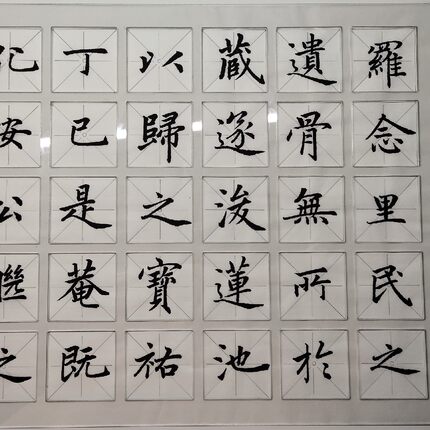 羅念里民之
遺骨無所於
蔵遂浚蓮池
以歸之寶祐
丁已是菴既
安公之